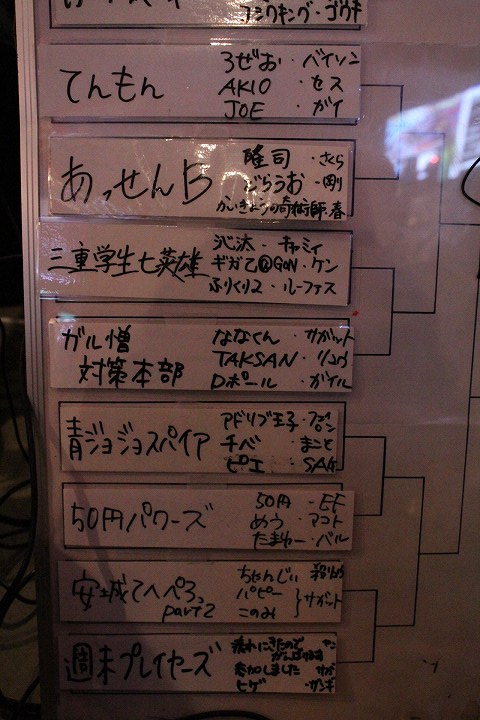 コシウキング・ゴウキ
てんもん
ろぜお・バイソン
AKIO・セス
JOE・ガイ
あっせんB
隆司・さくら
どらうお・剛
かいきょうの奇術師・春
三重学生七英雄
沁汰・キャミィ
ギガ乙@GON・ケン
ふりくり2・ルーファス
ガル憎
対策本部
ななくん・サガット
TAKSAN・リュウ
Dポール・ガイル
青ジョジョスパイア
アドリブ王子
チベ・まこと
ピエ・SAG
50円パワーズ
50円-EF
めう・マコト
たまゆー・バル
安城てへぺろっ
part2
ちゃんじぃ
パピー
このみ
サガット
週末プレイヤーズ
がんばります
参加しました サガ
ヒゲ・ザンギ